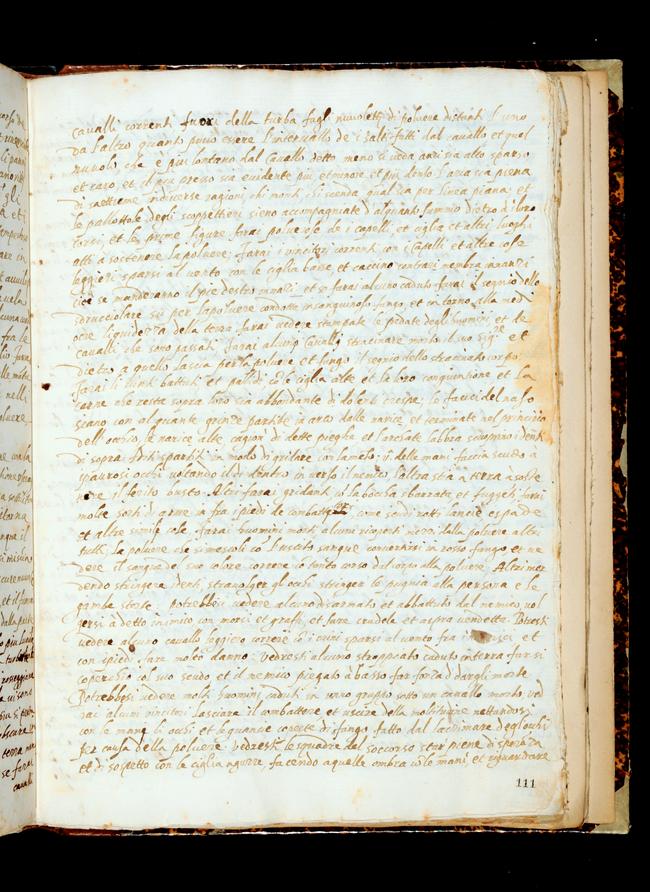 cavalli correnti fuori della turba fagli nuvoletti di polvere distanti l'uno
da l'altro quanto puuo essere l'intervallo de i salti fatti dal cavallo et quel
nuvolo, che è piu lontano dal cavallo detto meno si veda anzi sia alto sparso
et raro, et il piu presso sia evidente piu et minore et piu denso l'aria sia piena
di saettieme in diverse ragioni, chi monti chi scenda qual sia per linea piana et
le pallottole degli scoppettieri sieno accompagnate d'alquanto fummo dietro a i loro
corsi, et le prime figure farai polverose ne i capelli, et ciglia et altri luoghi
atti a sostenere la polvere. Farai i vincitori correnti con i capelli et altre cose
leggieri sparsi al vento con le ciglia basse, et caccino contrari membra innanzi
cioè se manderanno il pie destro innanzi et se farai alcuno caduto farai il segnio dello
sdrucciolare su per la polvere condotta in sanguinoso fango, et intorno alla med
ocre liquidezza della terra farai vedere stampate le pedate degli huomini et de
cavalli che sono passati farai alcuno cavallo strascinare morto il suo sig.re et
dietro a quello lascia per la polvere et fango il segnio dello strascinato corpo.
Farai li vinti battuti et pallidi, cō le ciglia alte et la loro congiuntione et la
carne che resta sopra loro sia abbondante di dolenti crespe, le fauci del naso
sieno con alquante grinze partite in arco dalle narice et terminate nel principio
dell'occhio, le narice alte cagion di dette pieghe et l'arcate labbra scuoprino i denti
di sopra denti spartiti in modo di gridare con lamento. una delle mani faccia scudo à
i paurosi occhi voltando il di drento in verso il nemico, l'altra stia a terra à soste
nere il ferito busto. Altri farai gridanti cō la boccha sbarrata et fuggenti farai
molte sorti d'arme in fra i piedi de combattori come scudi rotti lancie espade
et altre simile cose. farai huomini morti alcuni ricoperti mezzi dalla polvere altri
tutti. la polvere che si mescoli cō l'uscito sangue convertirsi in rosso fango et ve
dere il sangue del suo colore correre cō torto corso dal corpo alla polvere. Altri mor
dendo stringere i denti, stravolger gl'occhi stringer le pugnia alla persona e le
gambe storte. potrebbesi vedere alcuno disarmato et abbattuto dal nemico vol
gersi a detto inimico con morsi et graffi, et fare crudele et aspra vendetta. Potresti
vedere alcuno cavallo leggiero correre cō i crini sparsi al vento fra i nemici et
con i piedi fare molto danno. Vedresti alcuno stroppiato caduto in terra farsi
coperchio col suo scudo et il nemico piegato à basso far forza di dargli morte
Potrebbesi vedere molti huomini caduti in uno gruppo sotto un cavallo morto ved
rai alcuni vincitori lasciare il combattere et uscire della moltitudine nettandosi
con le mani li occhi et le guancie coperte di fango fatto dal lacrimare degl'occhi
per causa della polvere. Vedresti le squadre del soccorso star piene di speranza
et di sospetto con le ciglia aguzze, facendo a quelle ombra cō le mani, et riguardare
111